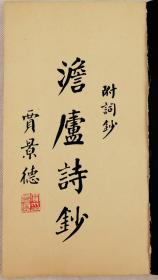 附詞鈔
澹廬詩鈔
賈景德